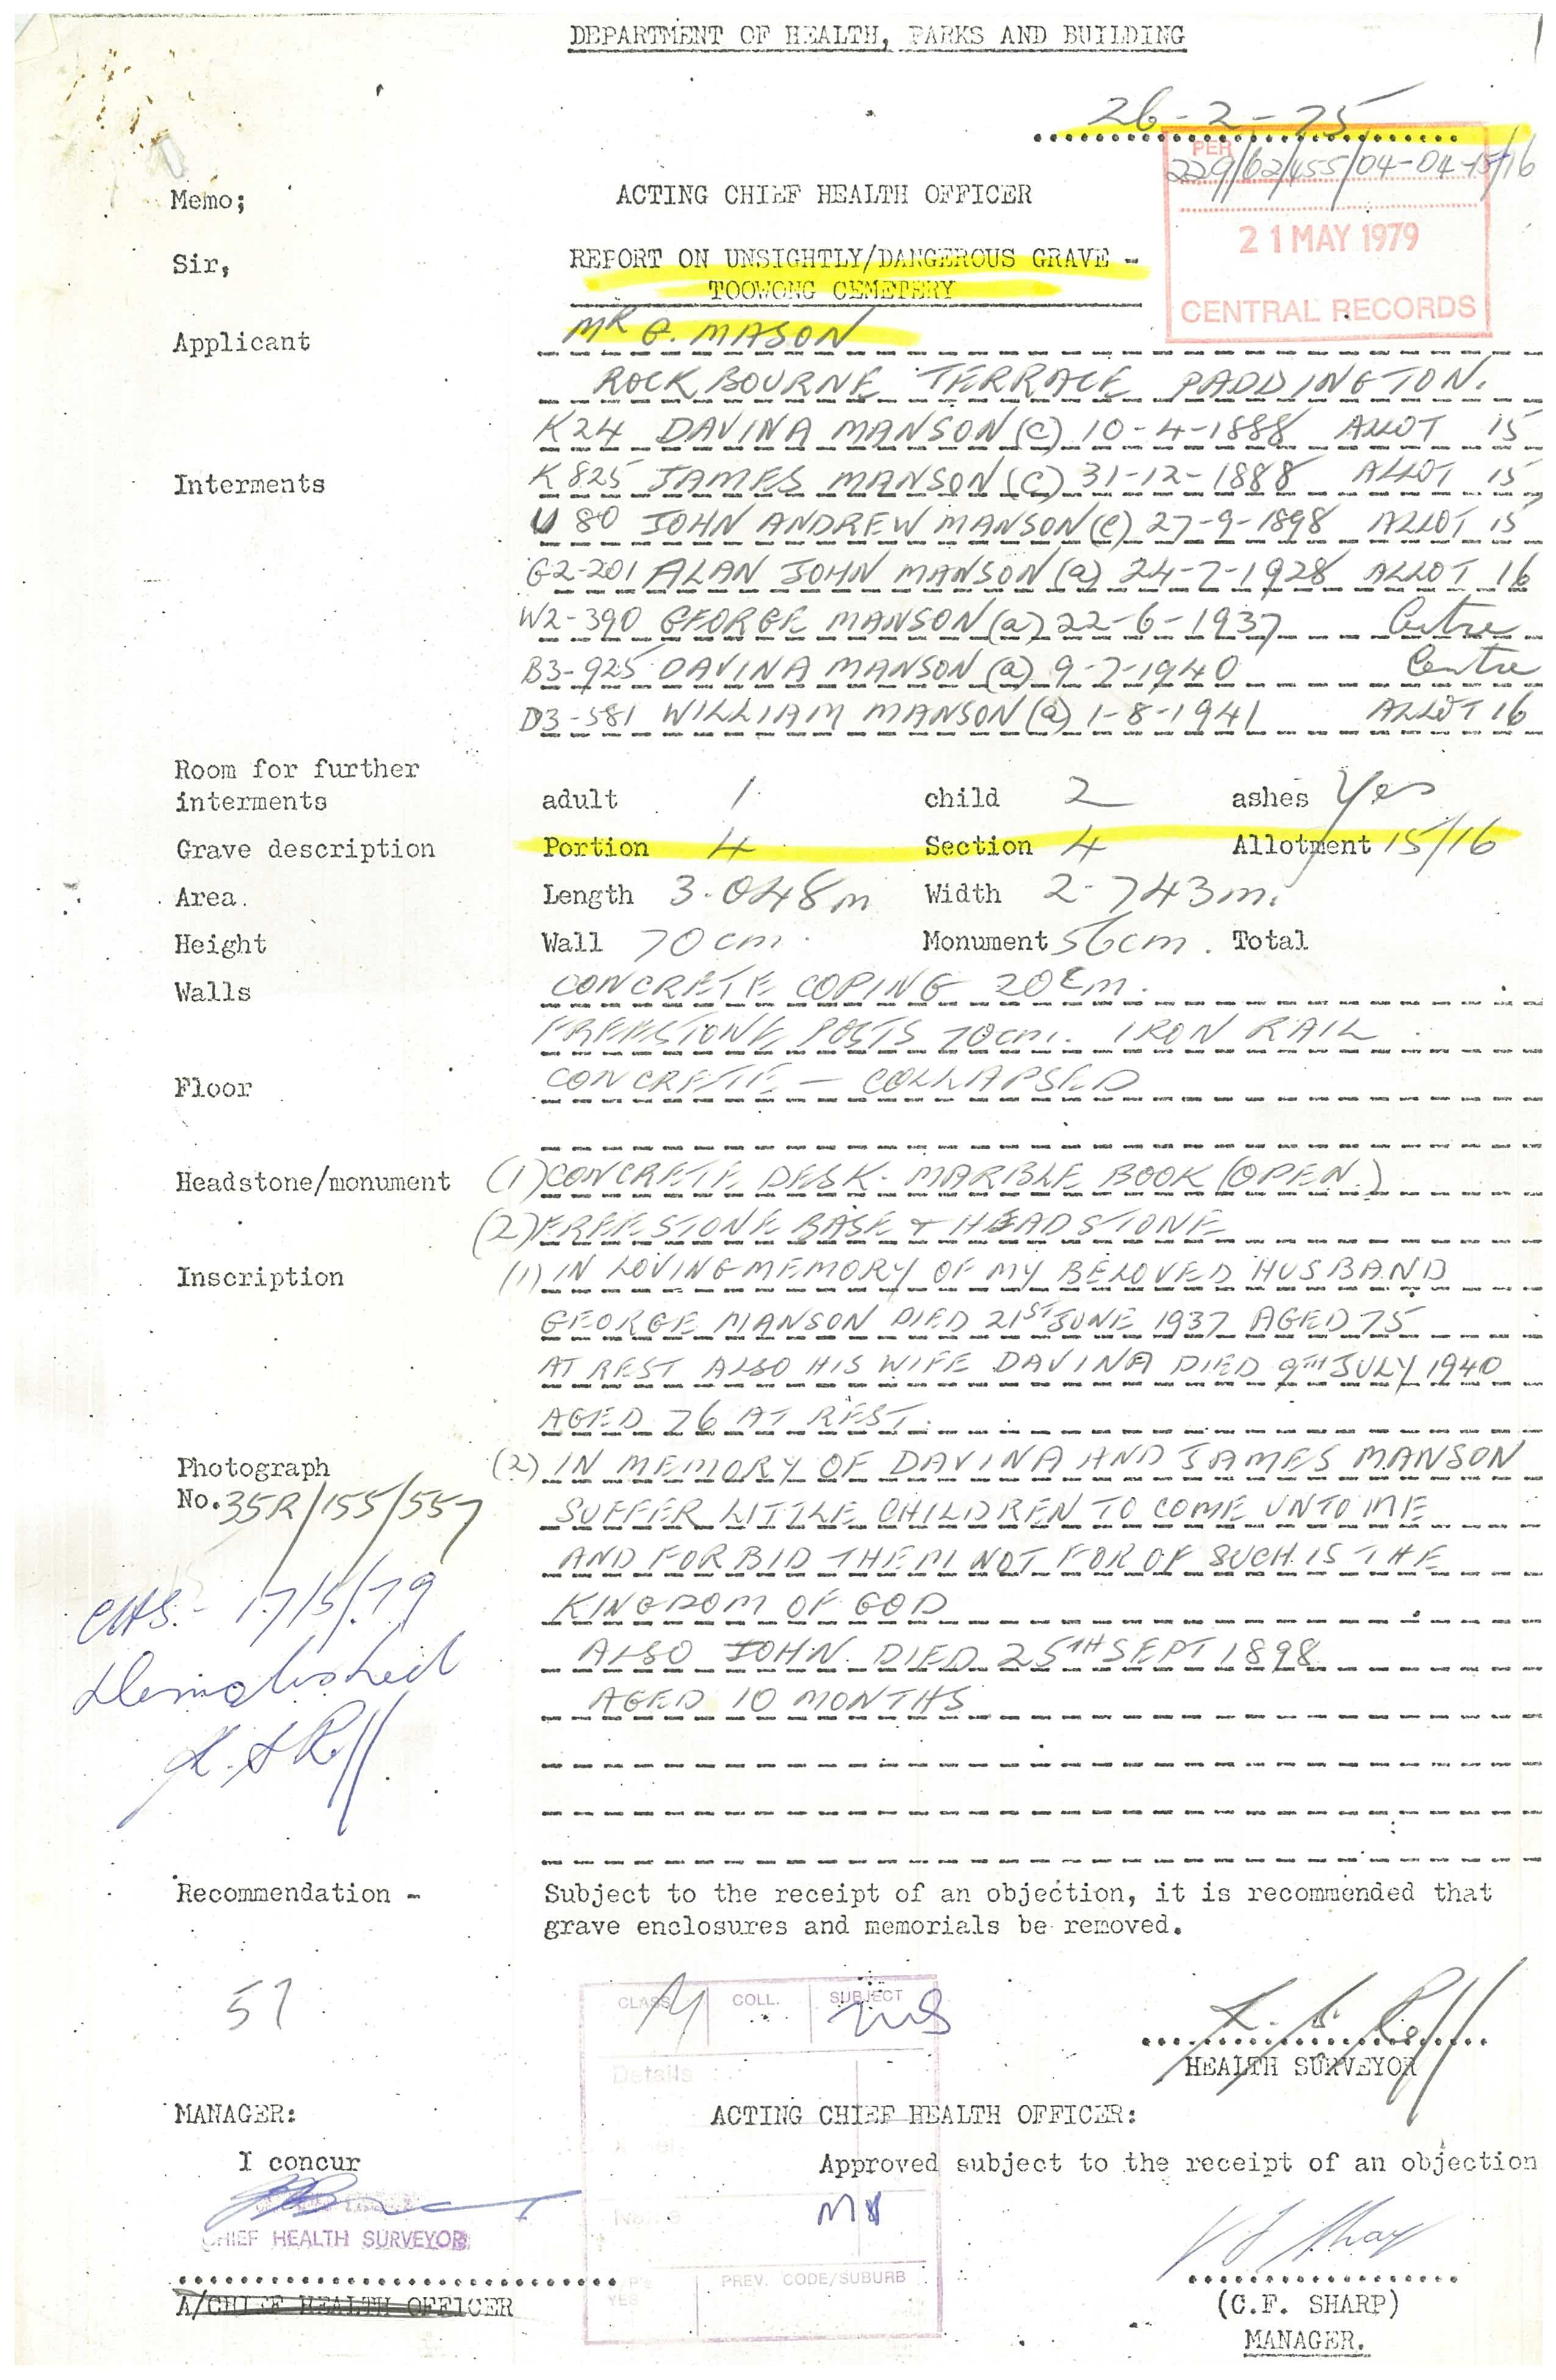 DEPARTMENT OF HEALTH, PARKS AND BUILDING
26-2-75
PER
229/62/455/04-04-15/16
Memo;
ACTING CHIEF HEALTH OFFICER
21 MAY 1979
Sir,
REPORT ON UNSIGHTLY/DANGEROUS GRAVE -
TOOWONG CEMETERY
CENTRAL RECORDS
Applicant
MR G. MASON
ROCKBOURNE TERRACE PADDINGTON.
K24 DAVINA MANSON (C) 10-4-1888 ALLOT 15
Interments
K825 JAMES MANSON (C) 31-12-1888 ALLOT 15
U 80 JOHN ANDREW MANSON (C) 27-9-1898 ALLOT 15
G2-201 ALAN JOHN MANSON (a) 24-7-1928 ALLOT 16
W2-390 GEORGE MANSON (a) 22-6-1937 Centre
B3-925 DAVINA MANSON (a) 9-7-1940 Centre
D3-581 WILLIAM MANSON (a) 1-8-1941 ALLOT 16
Room for further
interments adult 1 child 2 ashes Yes
Grave description Portion 4 Section 4 Allotment 15/16
Area. Length 3.048m Width 2.743m.
Height Wall 70cm. Monument 56cm. Total
Walls CONCRETE COPING 20cm.
FREESTONE POSTS 70cm. IRON RAIL
Floor CONCRETE - COLLAPSED
Headstone/monument (1) CONCRETE DESK. MARBLE BOOK (OPEN.)
(2) FREESTONE BASE + HEADSTONE
Inscription (1) IN LOVING MEMORY OF MY BELOVED HUSBAND
GEORGE MANSON DIED 21ST JUNE 1937 AGED 75
AT REST ALSO HIS WIFE DAVINA DIED 9TH JULY 1940
AGED 76 AT REST.
Photograph (2) IN MEMORY OF DAVINA AND JAMES MANSON
No. 35R/155/557
SUFFER LITTLE CHILDREN TO COME UNTO ME
AND FORBID THEM NOT FOR OF SUCH IS THE
KINGDOM OF GOD
CHS. - 17/5/79
ALSO JOHN. DIED 25TH SEPT 1898
Demolished
AGED 10 MONTHS
Recommendation - Subject to the receipt of an objection, it is recommended that
grave enclosures and memorials be removed.
57
CLASS COLL. SUBJECT
Details
HEALTH SURVEYOR
MANAGER: ACTING CHIEF HEALTH OFFICER:
I concur Approved subject to the receipt of an objection
CHIEF HEALTH SURVEYOR
PREV. CODE/SUBURB
YES
A/CHIEF HEALTH OFFICER
(C.F. SHARP)
MANAGER.